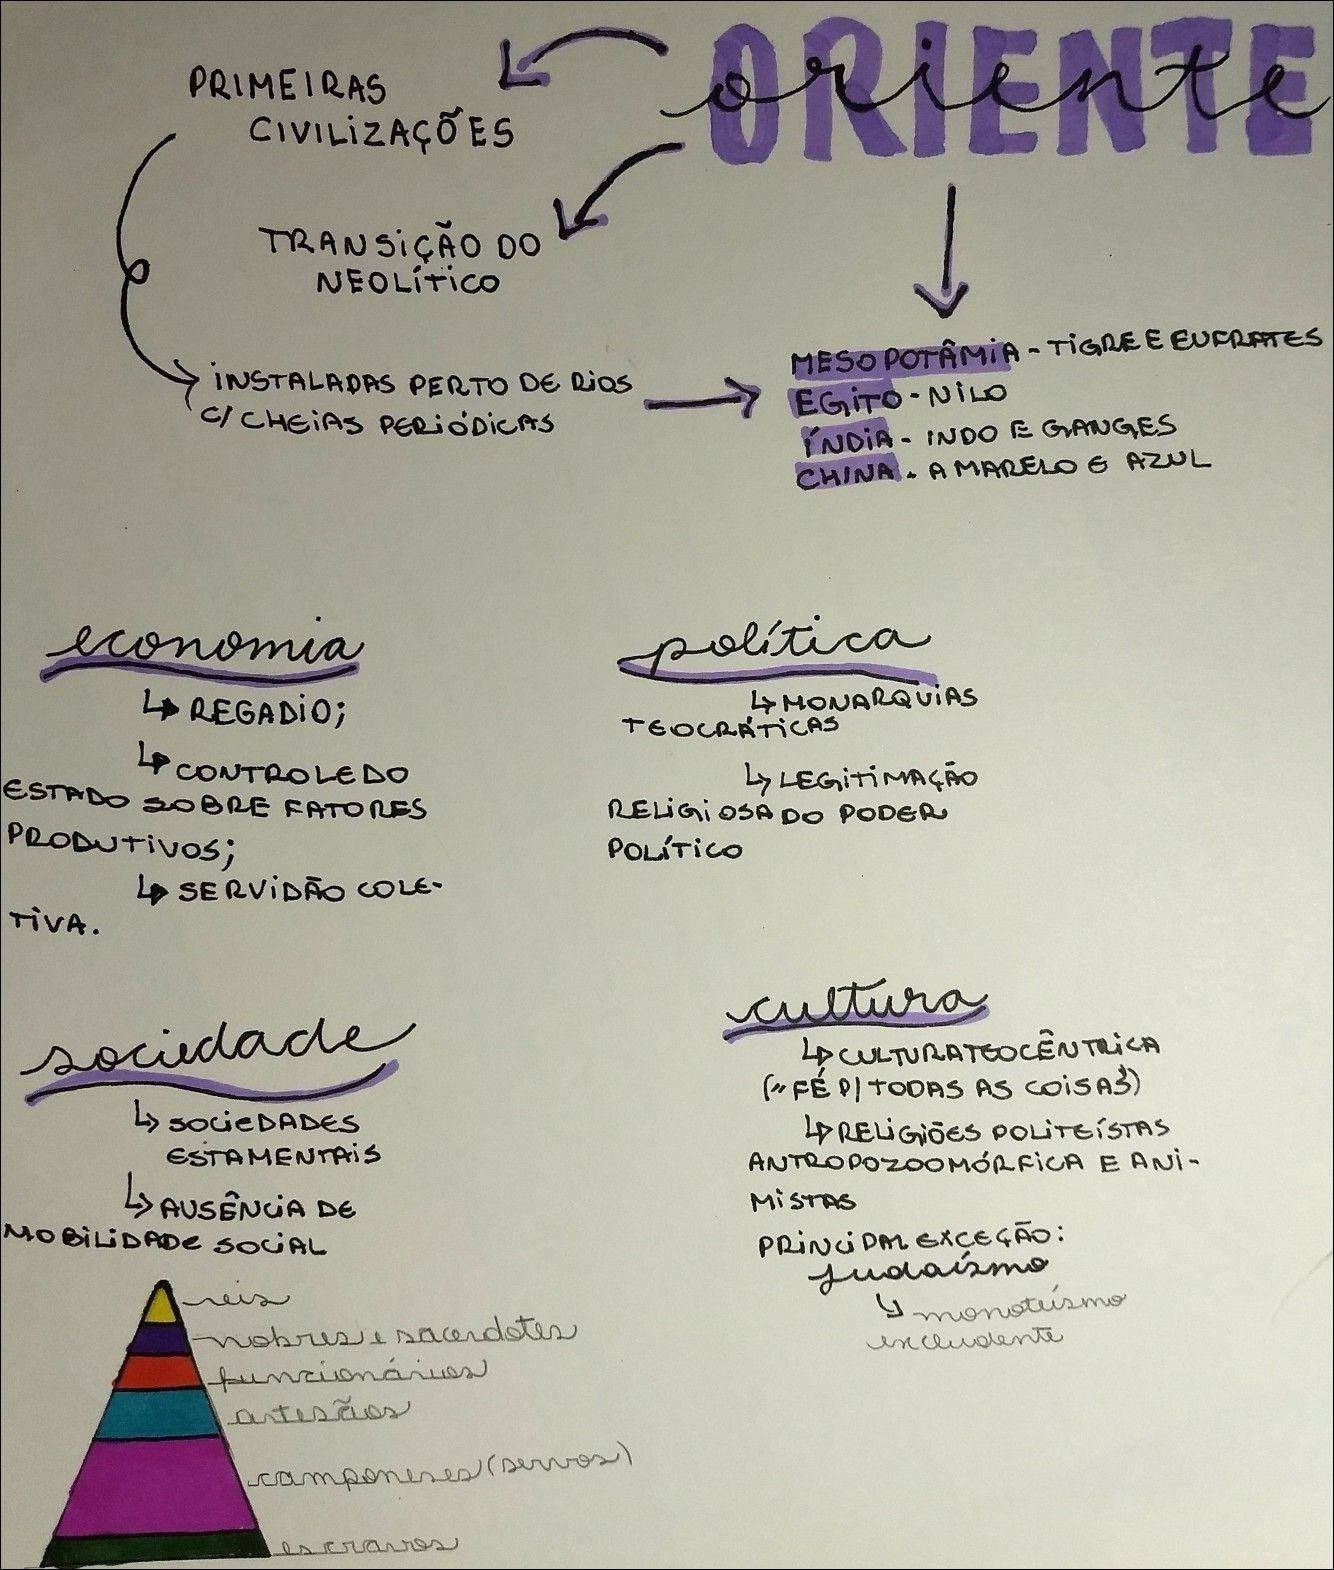 ORIENTE
oriente
PRIMEIRAS
CIVILIZAÇÕES
TRANSIÇÃO DO
NEOLÍTICO
INSTALADAS PERTO DE RIOS
C/ CHEIAS PERIÓDICAS
MESOPOTÂMIA - TIGRE E EUFRATES
EGITO - NILO
ÍNDIA - INDO E GANGES
CHINA - AMARELO E AZUL
economia
↳ REGADIO;
↳ CONTROLE DO
ESTADO SOBRE FATORES
PRODUTIVOS;
↳ SERVIDÃO COLE-
TIVA.
política
↳ MONARQUIAS
TEOCRÁTICAS
↳ LEGITIMAÇÃO
RELIGIOSA DO PODER
POLÍTICO
sociedade
↳ SOCIEDADES
ESTAMENTAIS
↳ AUSÊNCIA DE
MOBILIDADE SOCIAL
reis
nobres e sacerdotes
funcionários
artesãos
camponeses (servos)
escravos
cultura
↳ CULTURA TEOCÊNTRICA
("FÉ P/ TODAS AS COISAS")
↳ RELIGIÕES POLITEÍSTAS
ANTROPOZOOMÓRFICA E ANI-
MISTAS
PRINCIPAL EXCEÇÃO:
judaísmo
↳ monoteísmo
excludente